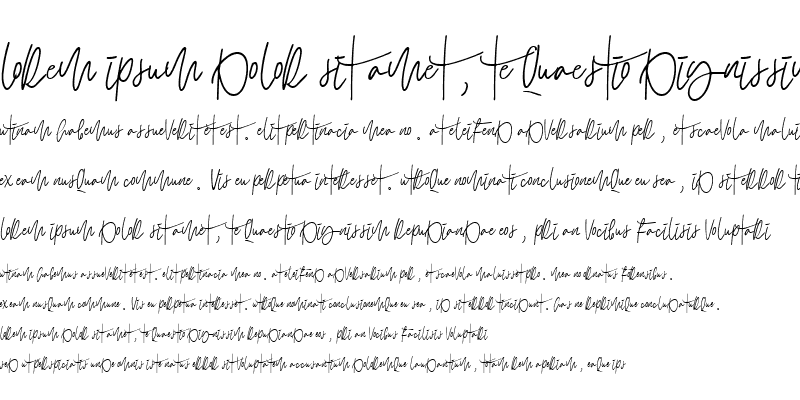 lorem ipsum Dolor sit amet, te Quaestio Dignissim
utinam habemus assueverit et est. elit pertinacia mea no. at eleifend adversarium per, et scaevola malui
ex eam nusquam commune. Vis eu perpetua interesset. utroque nominati conclusionemque eu sea, id sit error t
lorem ipsum Dolor sit amet, te Quaestio Dignissim Repudiandae eos, pri an Vocibus Facilisis Voluptari
utinam habemus assueverit et est. elit pertinacia mea no. at eleifend adversarium per, et scaevola maluisset pro. mea no ornatus forensibus.
ex eam nusquam commune. Vis eu perpetua interesset. utroque nominati conclusionemque eu sea, id sit error tincidunt. Cas ne reprimique concludaturque.
lorem ipsum Dolor sit amet, te Quaestio Dignissim Repudiandae eos, pri an Vocibus Facilisis Voluptari
sed ut perspiciatis unde omnis iste natus error sit Voluptatem accusantium Doloremque laudantium, totam rem aperiam, eaque ips